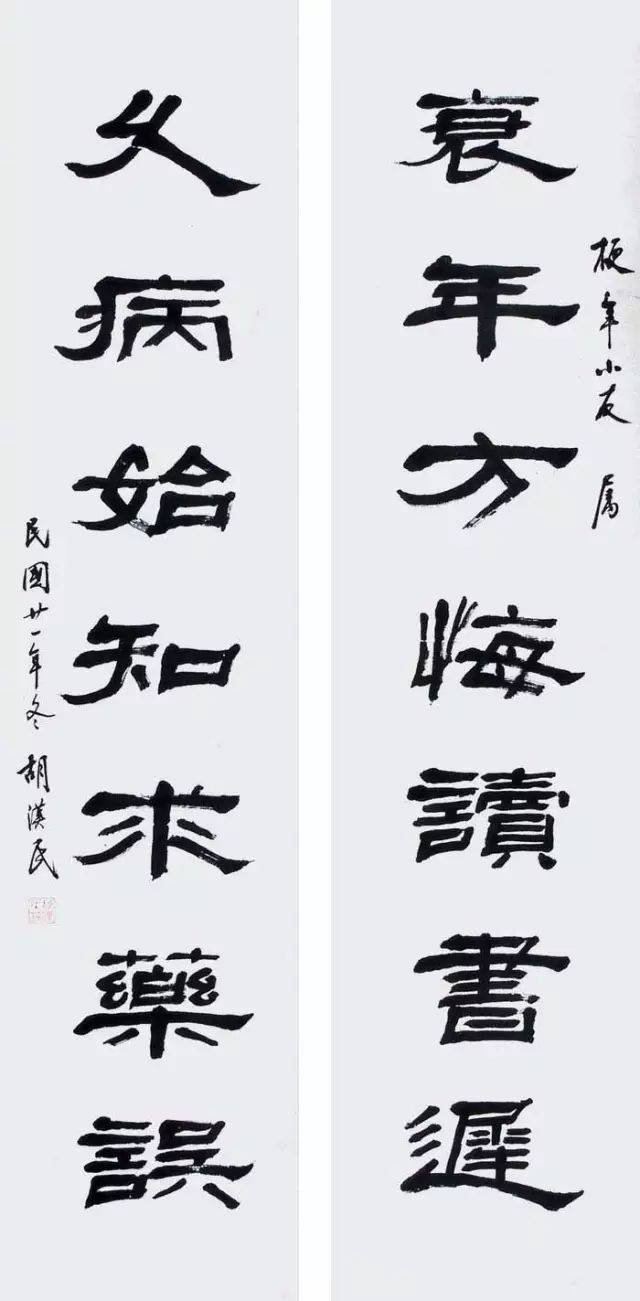 衰年方悔讀書遲
梗年小友 属
久病始知求藥誤
民國廿一年冬 胡漢民